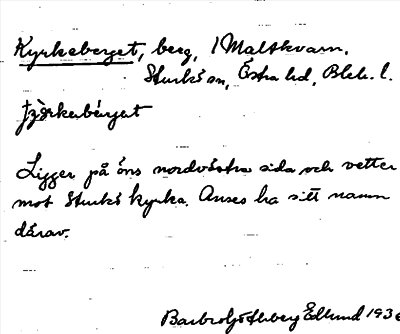 Kyrkeberget, berg, 1 Maltkvarn,
Sturkö sn, Östra hd, Blek. l.
Ligger på öns nordvästra sida och vetter
mot Sturkö kyrka. Anses ha sitt namn
därav.
Edlund 193